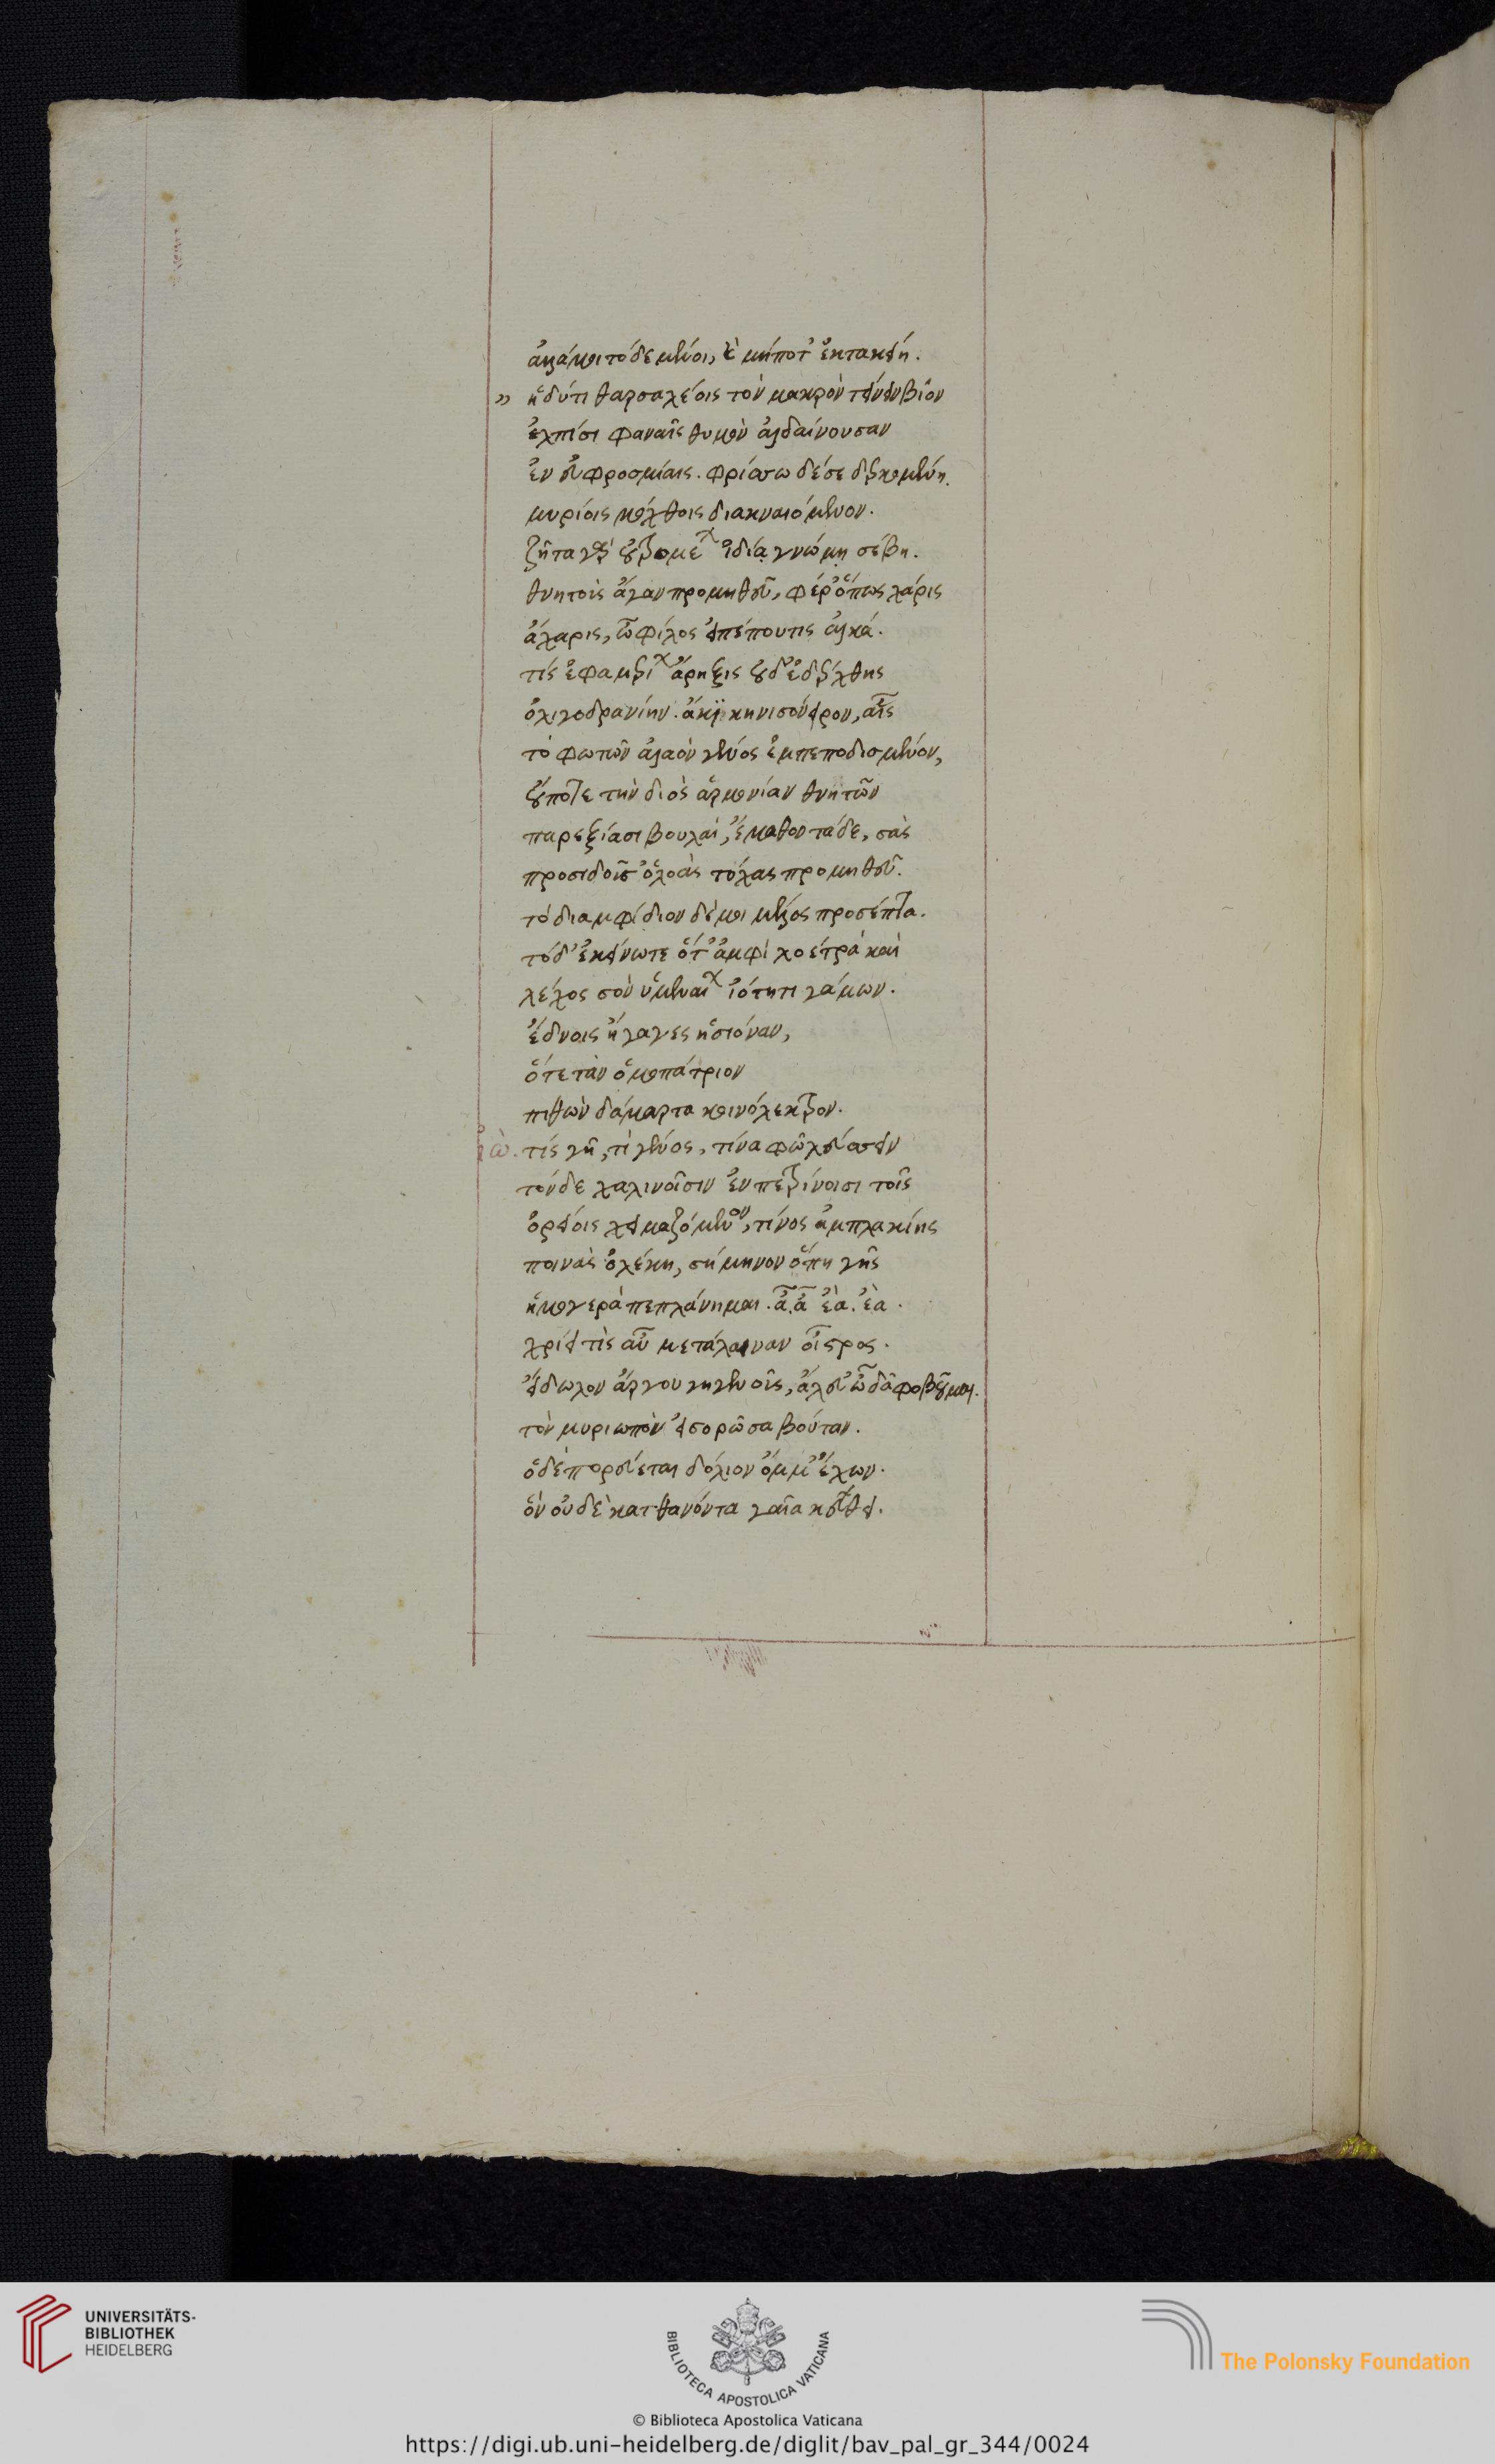 ἀλλά μοι τόδε μένοι, καὶ μήποτ' ἐκτακείη.
» ἡδύ τι θαρσαλέοις τὸν μακρὸν τείνειν βίον
ἐλπίσι φαναῖς θυμὸν ἀλδαίνουσαν
ἐν εὐφροσύναις. φρίσσω δέ σε δερκομένη.
μυρίοις μόχθοις διακναιόμενον.
ζῆνα γὰρ οὐ τρομέων ἰδίᾳ γνώμῃ σέβῃ.
θνητοὺς ἄγαν προμηθεῦ, φέρ' ὅπως χάρις
ἄχαρις, ὦ φίλος εἰπέ που τίς ἀλκά.
τίς ἐφαμερίων ἄρηξις οὐδ' ἐδέρχθης
ὀλιγοδρανίην. ἄκικυν ἰσόνειρον, αἷς
τὸ φωτῶν ἀλαὸν γένος ἐμπεποδισμένον,
οὔποτε τὴν διὸς ἁρμονίαν θνητῶν
παρεξίασι βουλαί, ἔμαθον τάδε, σὰς
προσιδοῦσ' ὀλοὰς τύχας προμηθεῦ.
τὸ διαμφίδιον δέ μοι μέλος προσέπτα.
τόδ' ἐκεῖνό τε ὅτ' ἀμφὶ λοετρὰ καὶ
λέχος σὸν ὑμεναίουν ἰότητι γάμων.
ἕδνοις ἤγαγες ἡσιόναν,
ὅτε τὰν ὁμοπάτριον
πιθὼν δάμαρτα κοινόλεκτρον.
ἰὼ. τίς γῆ, τί γένος, τίνα φῶ λεύσσειν
τόνδε χαλινοῖσιν ἐν πετρίνοισι τοῖς
ὀρείοις χειμαζόμενον, τίνος ἀμπλακίης
ποινὰς ὀλέκῃ, σήμηνον ὅπῃ γῆς
ἡ μογερὰ πεπλάνημαι. ἆ. ἆ ἐὰ. ἐὰ.
χρίει τὶς αὖ με τάλαιναν οἶστρος.
εἴδωλον ἄργου γηγενοῦς, ἄλευ' ὦ δᾶ φοβοῦμαι.
τὸν μυριωπὸν εἰσορῶσα βούταν.
ὁ δὲ πορεύεται δόλιον ὄμμ' ἔχων.
ὃν οὐδὲ κατθανόντα γαῖα κεύθει.
UNIVERSITÄTS-
BIBLIOTHEK
HEIDELBERG
BIBLIOTECA APOSTOLICA VATICANA
The Polonsky Foundation
© Biblioteca Apostolica Vaticana
https://digi.ub.uni-heidelberg.de/diglit/bav_pal_gr_344/0024